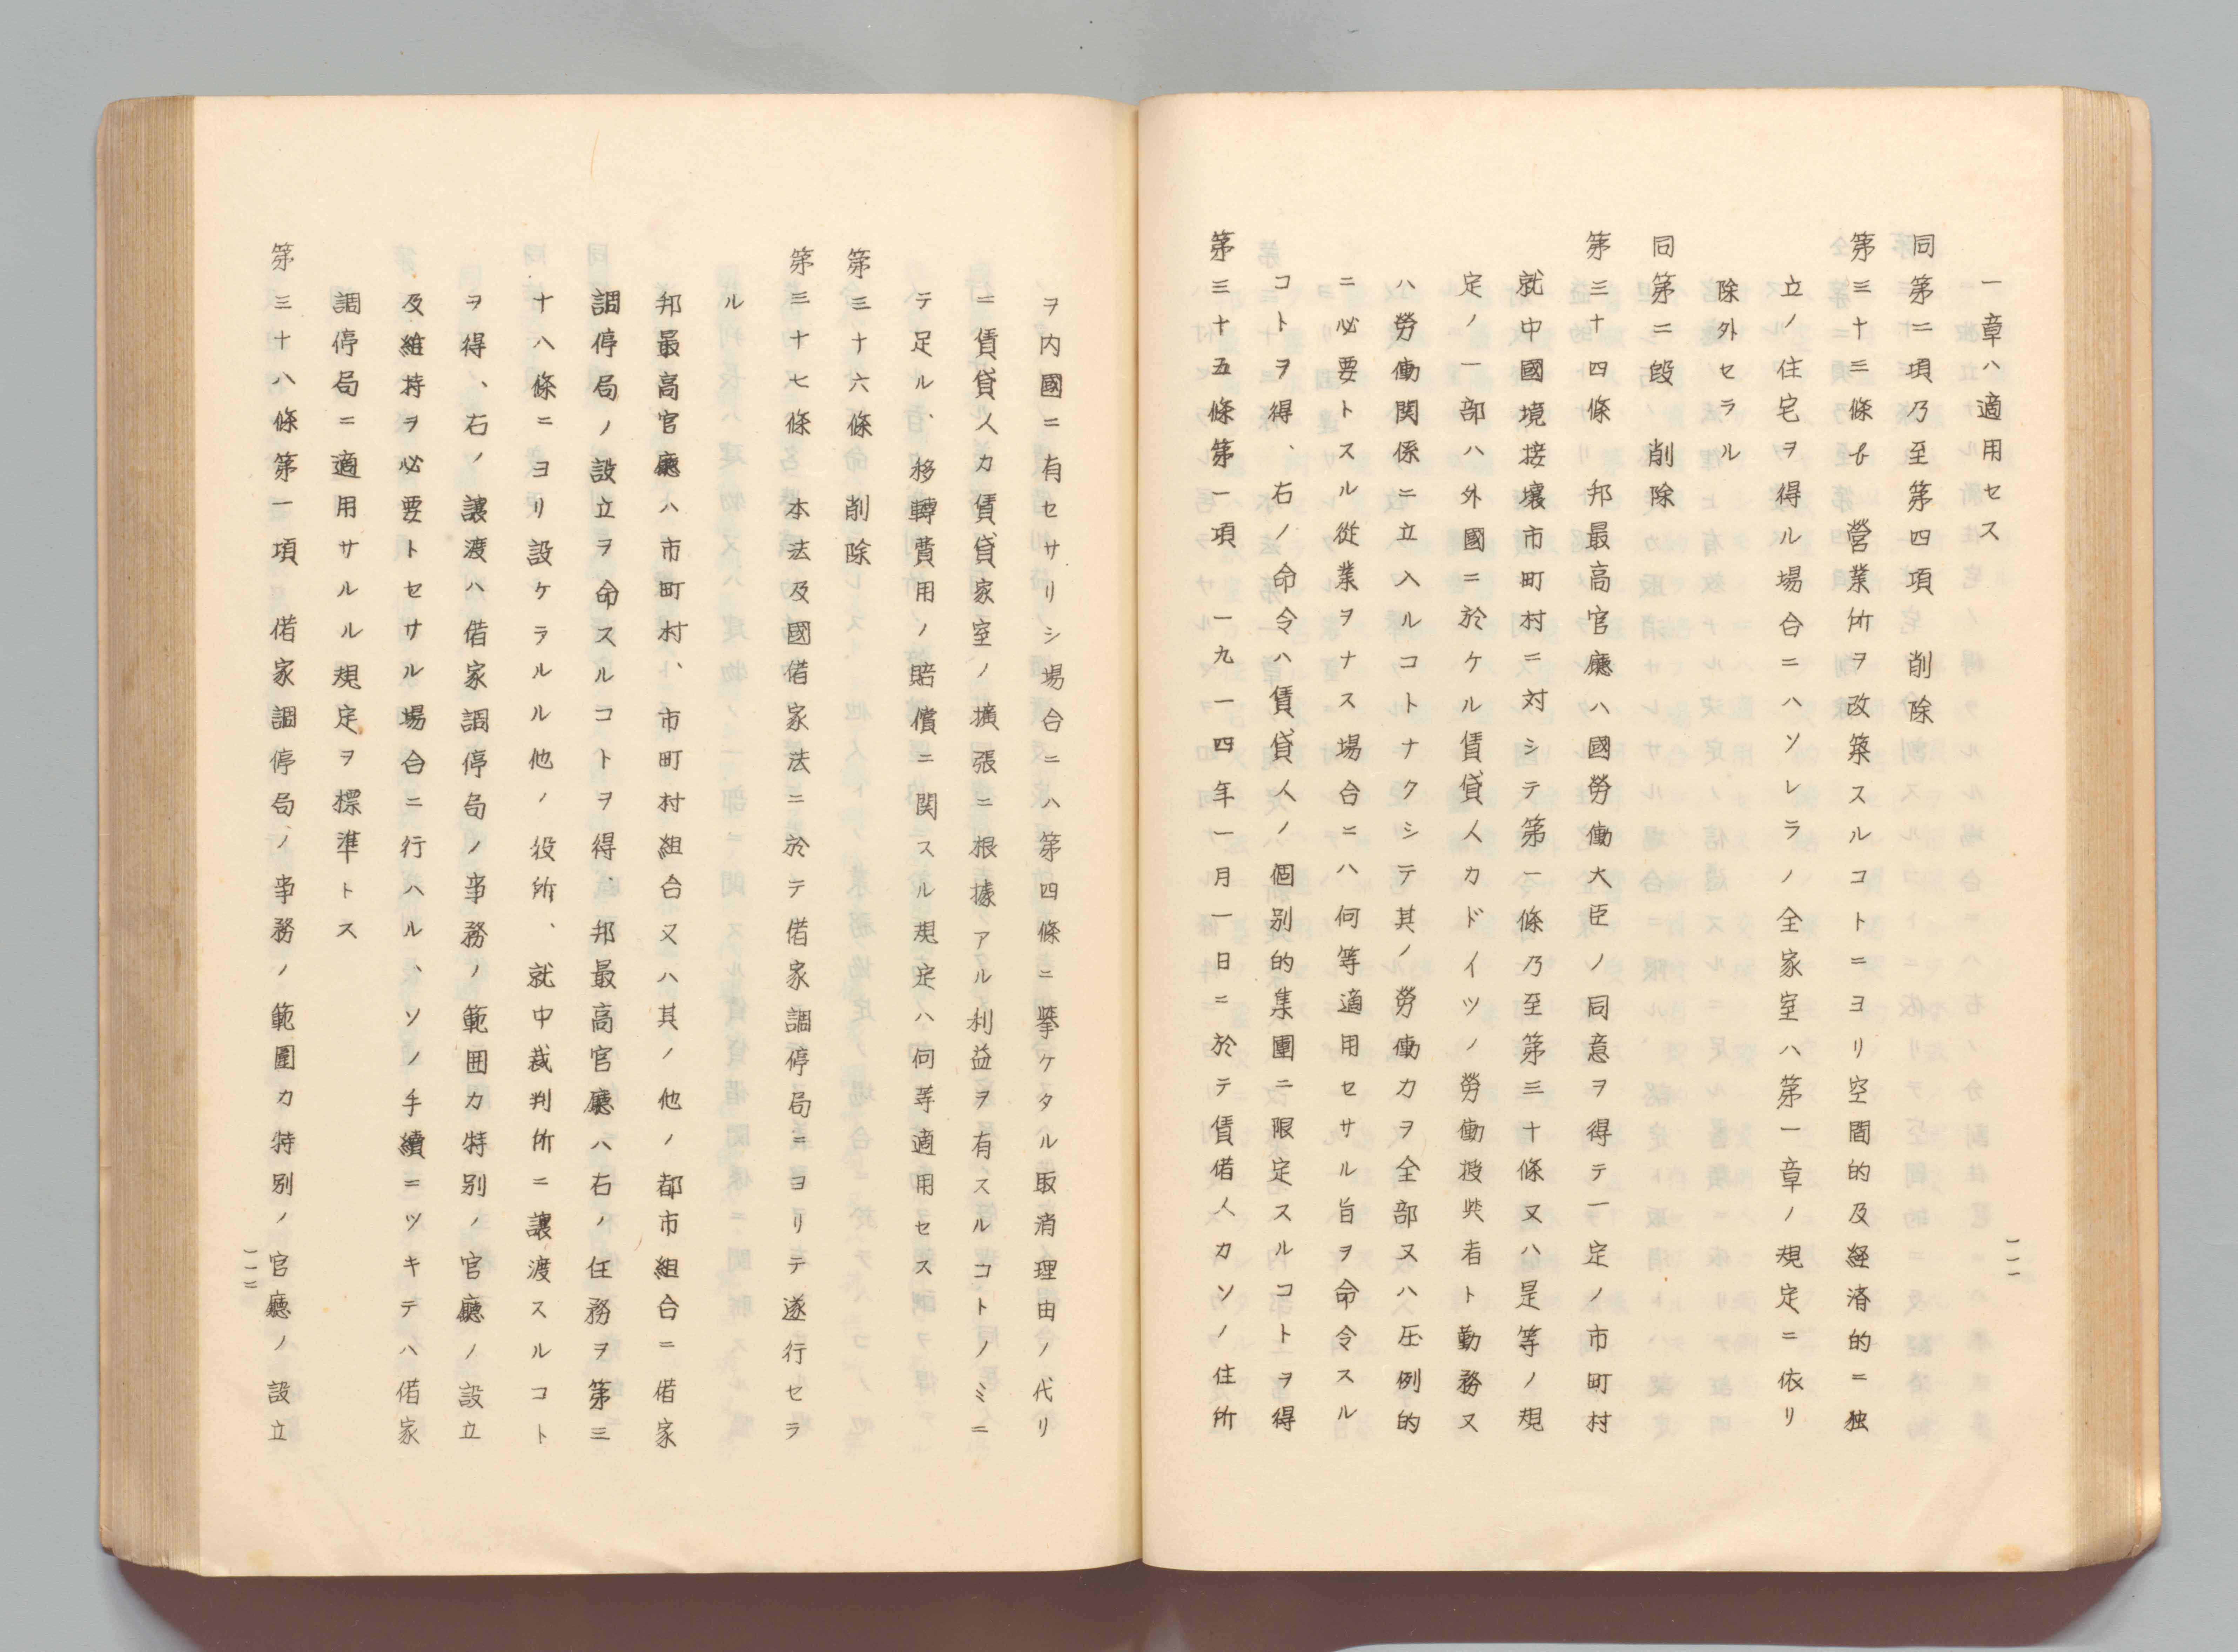 一章ハ適用セス
同第二項乃至第四項　削除
第三十三條b　營業所ヲ改築スルコトニヨリ空間的及経済的ニ独
立ノ住宅ヲ得ル場合ニハソレラノ全家室ハ第一章ノ規定ニ依リ
除外セラル
同第二段　削除
第三十四條　邦最高官廳ハ國勞働大臣ノ同意ヲ得テ一定ノ市町村
就中國境接壤市町村ニ対シテ第一條乃至第三十條又ハ是等ノ規
定ノ一部ハ外國ニ於ケル賃貸人カドイツノ勞働授與者ト勤務又
ハ勞働関係ニ立入ルコトナクシテ其ノ勞働力ヲ全部又ハ圧例的
ニ必要トスル從業ヲナス場合ニハ何等適用セサル旨ヲ命令スル
コトヲ得、右ノ命令ハ賃貸人ノ個別的集團ニ限定スルコトヲ得
第三十五條第一項　一九一四年一月一日ニ於テ賃借人カソノ住所
一一一
ヲ内國ニ有セサリシ場合ニハ第四條ニ擧ケタル取消理由ノ代リ
ニ賃貸人カ賃貸家室ノ擴張ニ根據ノアル利益ヲ有スルコトノミニ
テ足ル、移轉費用ノ賠償ニ関スル規定ハ何等適用セス
第三十六條　削除
第三十七條　本法及國借家法ニ於テ借家調停局ニヨリテ遂行セラ
ル
邦最高官廳ハ市町村、市町村組合又ハ其ノ他ノ都市組合ニ借家
調停局ノ設立ヲ命スルコトヲ得、邦最高官廳ハ右ノ任務ヲ第三
十八條ニヨリ設ケラルル他ノ役所、就中裁判所ニ讓渡スルコト
ヲ得、右ノ讓渡ハ借家調停局ノ事務ノ範囲カ特別ノ官廳ノ設立
及維持ヲ必要トセサル場合ニ行ハル、ソノ手續ニツキテハ借家
調停局ニ適用サルル規定ヲ標準トス
第三十八條第一項　借家調停局ノ事務ノ範圍カ特別ノ官廳ノ設立
一一二